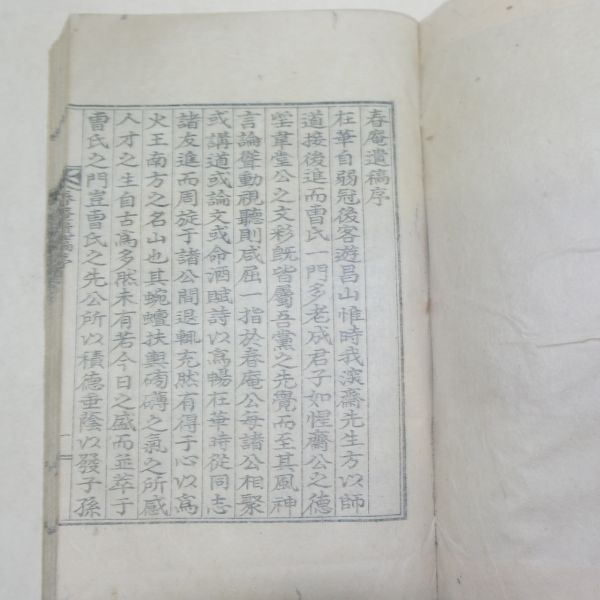 春庵遺稿序
枉華自弱冠後客遊昌山惟時我濱齋先生方以師
道接後進而曺氏一門多老成君子如惺齋公之德
堅韋堂公之文彩旣皆屬吾黨之先覺而至其風神
言論聳動視聽則咸屈一指於春庵公每諸公相聚
或講道或論文或命酒賦詩以爲暢枉華時從同志
諸友進而周旋于諸公間退輒充然有得于心以爲
火王南方之名山也其蜿蟺扶輿磅礴之氣之所感
人才之生自古爲多然未有若今日之盛而並萃于
曺氏之門豈曺氏之先公所以積德垂蔭以發子孫
春庵遺稿序
一